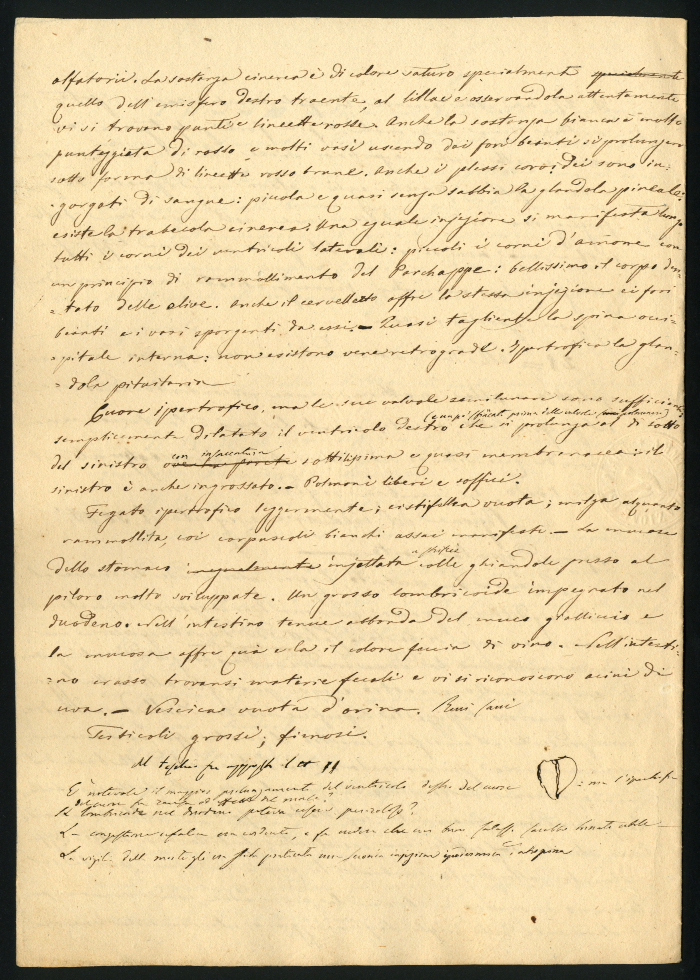 olfatorii. La sostanza cinerea è di colore saturo specialmente specialmente
quello dell'emisfero destro traente al lillac e osservandola attentamente
vi si trovano punti e lineette rosse. Anche la sostanza bianca è molto
punteggiata di rosso e molti vasi uscendo dai fori beanti si prolungano
sotto forma di lineette rosso brune. Anche i plessi coroidei sono in-
gorgati di sangue: piccola e quasi senza sabbia la glandola pineale:
esiste la trabecola cinerea: Una eguale injezione si manifesta lungo
tutti i corni dei ventricoli laterali: piccoli i corni d'amone con
un principio di rammollimento del Parchappe: bellissimo il corpo den-
-tato delle olive. Anche il cervelletto offre la stessa injezione ei fori
beanti e i vasi sporgenti da essi. — Quasi tagliente la spina occi-
-pitale interna: non esistono vene retrograde. Ipertrofica la glan-
-dola pituitaria
Cuore ipertrofico, ma le sue valvole semilunare sono sufficienti
semplicemente dilatato il ventricolo destro che si prolunga al di sotto
del sinistro con insaccatura sottilissima e quasi membranacea: il
sinistro è anche ingrossato. — Polmoni liberi e soffici.
Fegato ipertrofico leggermente; cistifellea vuota; milza alquanto
rammollita, coi corpuscoli bianchi assai manifesti. — La mucosa
dello stomaco inegualmente injettata a striscie colle ghiandole presso al
piloro molto sviluppate. Un grosso lombricoide impegnato nel
duodeno. Nell'intestino tenue abbonda del muco gialliccio e
la mucosa offre quà e la il colore feccia di vino. Nell'intesti-
-no crasso trovansi materie fecali e vi si riconoscono acini di
uva. — Vescica vuota d'orina. Reni sani
Testicoli grossi; fienosi.
È notevole il maggior prolungamento del ventricolo destro del cuore : ma l'ipertrofia
del cuore fu causa od effetto del male?
Il lombricoide nel duodeno poteva essere pericoloso?
La congestione cefalica era evidente, e fa vedere che un buon salasso sarebbe tornato utile
La vigilia della morte gli era stata praticata una seconda injezione ipodermica d'atropina